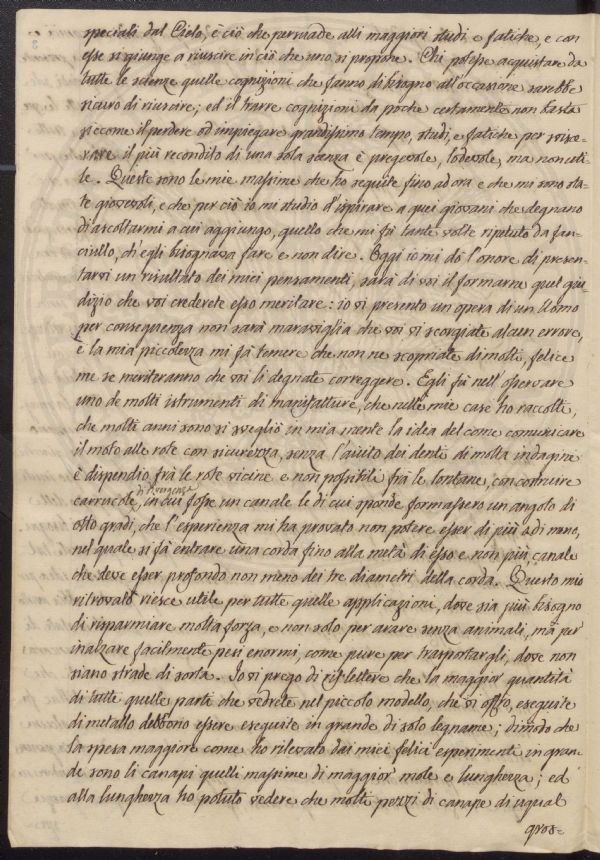 speciali dal Cielo, è ciò che persuade alli maggiori studi, e fatiche, e con
esse si giunge a riuscire in ciò che uno si propone. Chi potesse acquistare da
tutte le scienze quelle cognizioni che fanno di bisogno all'occasione sarebbe
sicuro di riuscire; ed il trarre cognizioni da poche certamente non basta
siccome il perdere od impiegare grandissimo tempo, studi, e fatiche per svisce-
rare il più recondito di una sola scienza è pregevole, lodevole, ma non uti-
le. Queste sono le mie massime che ho seguite fino ad ora e che mi sono sta-
te giovevoli, e che per ciò io mi studio d'ispirare a quei giovani che degnano
di ascoltarmi a cui aggiungo, quello che mi fù tante volte ripetuto da fan-
ciullo, ch'egli bisognava fare e non dire. Oggi io mi dò l'onore di presen-
tarvi un risultato dei miei pensamenti, sarà di voi il formarne quel giu-
dizio che voi crederete esso meritare: io vi presento un opera di un Uomo
per conseguenza non sarà maraviglia che voi vi scorgiate alcun errore,
e la mia piccolezza mi fà temere che non ne scopriate di molti, felice
me se meriteranno che voi li degnate correggere. Egli fù nell'osservare
uno de molti istrumenti di manifatture, che nelle mie case ho raccolti,
che molti anni sono si svegliò in mia mente la idea del come comunicare
il moto alle rote con sicurezza, senza l'aiuto dei denti di molta indagine
è dispendio frà le rote vicine e non possibili frà le lontane, con costruire
carrucole, in cui fosse un canale le di cui sponde formassero un angolo di
otto gradi, che l'esperienza mi ha provato non potere esser di più o di meno,
nel quale si fà entrare una corda fino alla metà di esso e non più, canale
che deve esser profondo non meno dei tre diametri della corda. Questo mio
ritrovato riesce utile per tutte quelle applicazioni, dove sia più bisogno
di risparmiare molta forza, e non solo per arare senza animali, mà per
inalzare facilmente pesi enormi, come pure per trasportargli, dove non
siano strade di sorta. Io vi prego di riflettere che la maggior quantità
di tutte quelle parti che vedrete nel piccolo modello, che vi offro, eseguite
di metallo debbono essere eseguite in grande di solo legname; dimodo che
la spesa maggiore come ho rilevato dai miei felici esperimenti in gran-
de sono li canapi quelli massime di maggior mole e lunghezza; ed
alla lunghezza ho potuto vedere che molti pezzi di canape di ugual
gros=